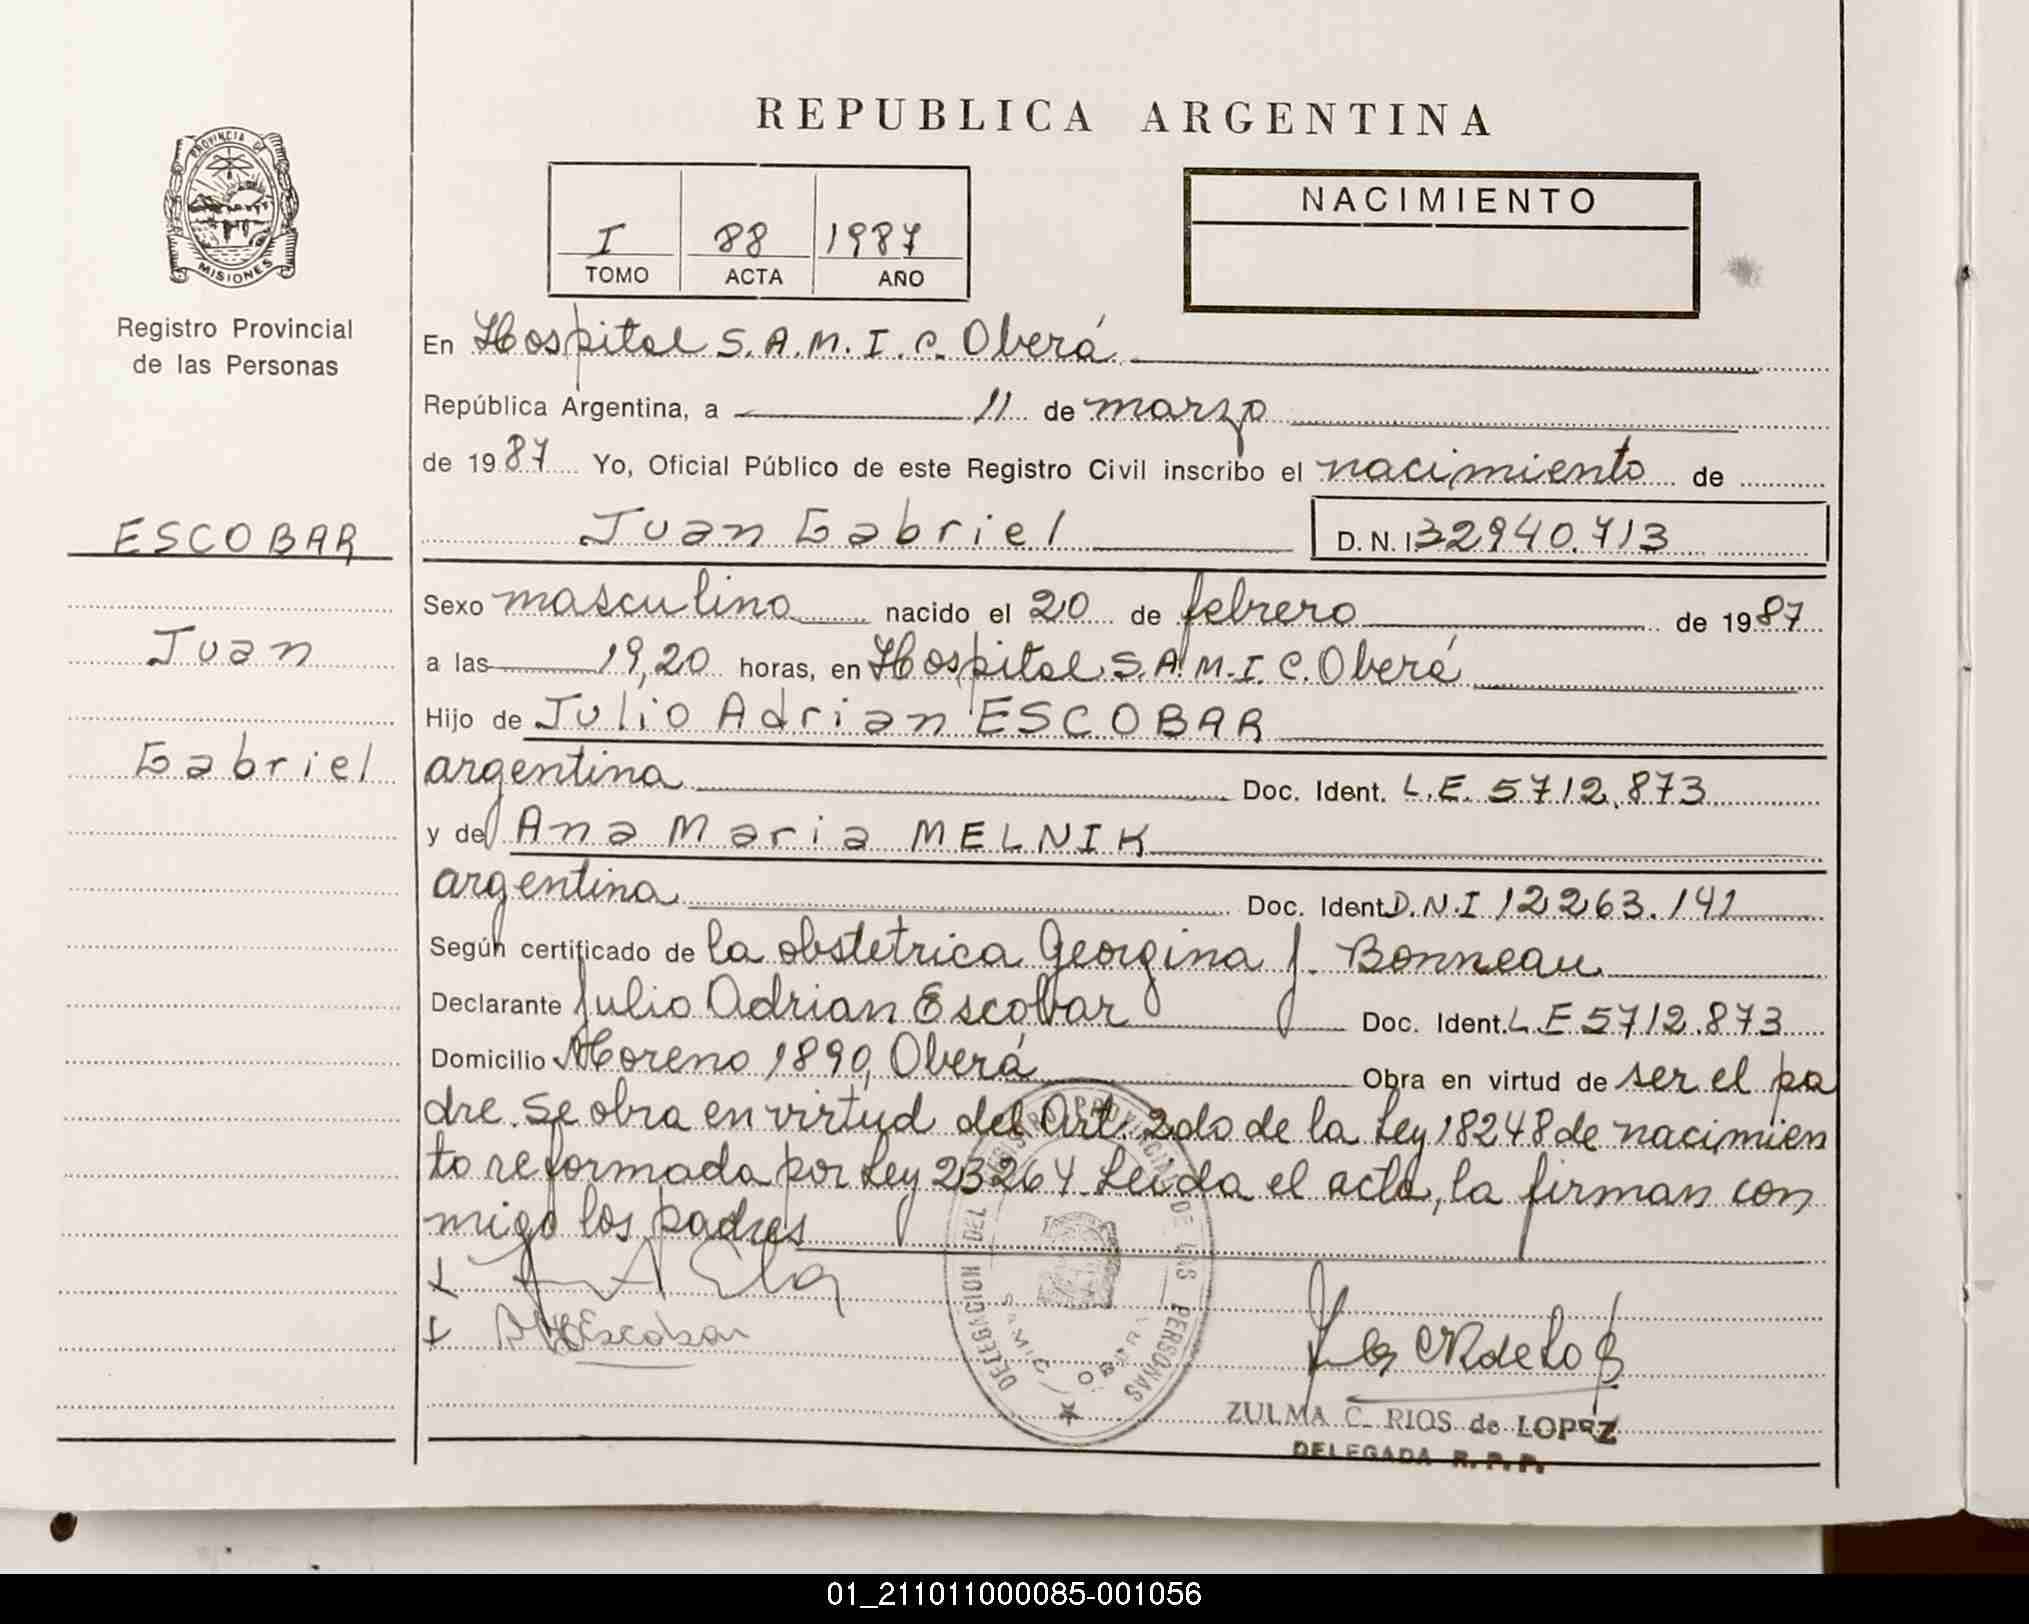 REPUBLICA ARGENTINA
PROVINCIA DE
MISIONES
Registro Provincial
de las Personas
I 88 1987
TOMO ACTA AÑO
NACIMIENTO
En Hospital S.A.M.I.C. Oberá
República Argentina, a 11 de marzo
de 1987 Yo, Oficial Público de este Registro Civil inscribo el nacimiento de
ESCOBAR
Juan Gabriel D.N.I. 32940.713
Sexo masculino nacido el 20 de febrero de 1987
Juan
a las 19,20 horas, en Hospital S.A.M.I.C. Oberá
Hijo de Julio Adrian ESCOBAR
Gabriel
argentina Doc. Ident. L.E. 5712.873
y de Ana Maria MELNIK
argentina Doc. Ident. D.N.I 12263.141
Según certificado de la obstetrica Georgina J. Bonneau
Declarante Julio Adrian Escobar Doc. Ident. L.E 5712.873
Domicilio Moreno 1890, Oberá Obra en virtud de ser el pa
dre. Se obra en virtud del Art. 2do de la Ley 18248 de nacimien
to reformada por Ley 23264. Leida el acta, la firman con
migo los padres
Escobar
DELEGACION DEL REGISTRO PROVINCIAL DE LAS PERSONAS
SAMIC OBERA
ZULMA C. RIOS de LOPEZ
DELEGADA R.P.P.
01_211011000085-001056